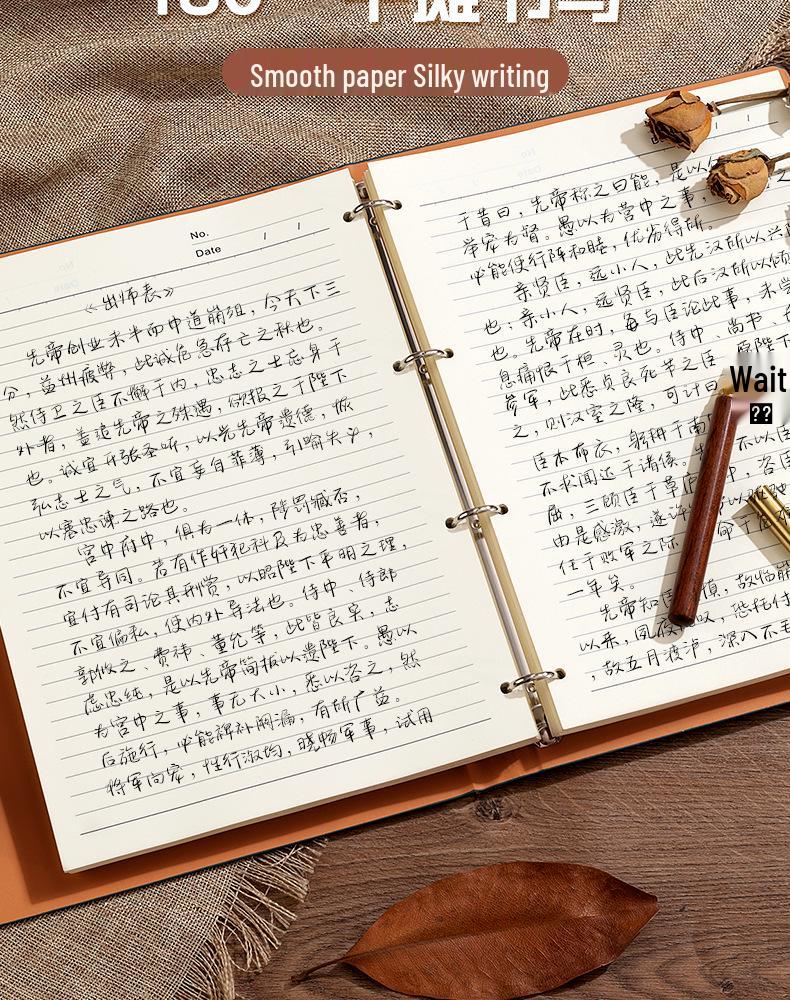 180° 平摊书写
Smooth paper Silky writing
No.
Date / /
《出师表》
先帝创业未半而中道崩殂，今天下三
分，益州疲弊，此诚危急存亡之秋也。
然侍卫之臣不懈于内，忠志之士忘身于
外者，盖追先帝之殊遇，欲报之于陛下
也。诚宜开张圣听，以光先帝遗德，恢
弘志士之气，不宜妄自菲薄，引喻失义，
以塞忠谏之路也。
宫中府中，俱为一体，陟罚臧否，
不宜异同。若有作奸犯科及为忠善者，
宜付有司论其刑赏，以昭陛下平明之理，
不宜偏私，使内外异法也。侍中、侍郎
郭攸之、费祎、董允等，此皆良实，志
虑忠纯，是以先帝简拔以遗陛下。愚以
为宫中之事，事无大小，悉以咨之，然
后施行，必能裨补阙漏，有所广益。
将军向宠，性行淑均，晓畅军事，试用
于昔日，先帝称之曰能，是以
举宠为督。愚以为营中之事，
必能使行阵和睦，优劣得所。
亲贤臣，远小人，此先汉所以兴
也；亲小人，远贤臣，此后汉所以倾
也。先帝在时，每与臣论此事，未尝
息痛恨于桓、灵也。侍中、尚书、
参军，此悉贞良死节之臣，愿陛下
之，则汉室之隆，可计日
臣本布衣，躬耕于南
不求闻达于诸侯。先 不以臣
屈，三顾臣于草庐 中，咨臣
由是感激，遂许 以驱驰
任于败军之际 命于危
一年矣。
先帝知臣 慎，故临崩
以来，夙夜 叹，恐托付
，故五月渡泸，深入不毛
Wait
??